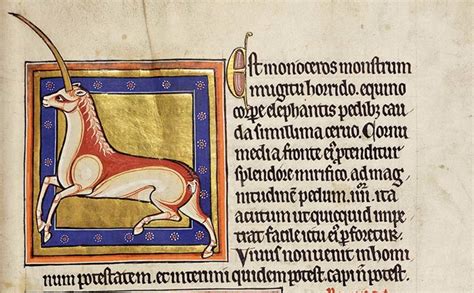 Est monoceros monstrum
mugitu horrido. equino
corpe elephantis pedib; cau
da simillima ceruo. Cornu
media fronte ei' ptenditur
splendore mirifico, ad mag
nitudinē pedum .iiii. ita
acutum ut quicquid impe
trat facile ictu ei' pforetur.
Viuus non uenit in homi
num potestatem. et interimi quidem potest. capi ñ potest.